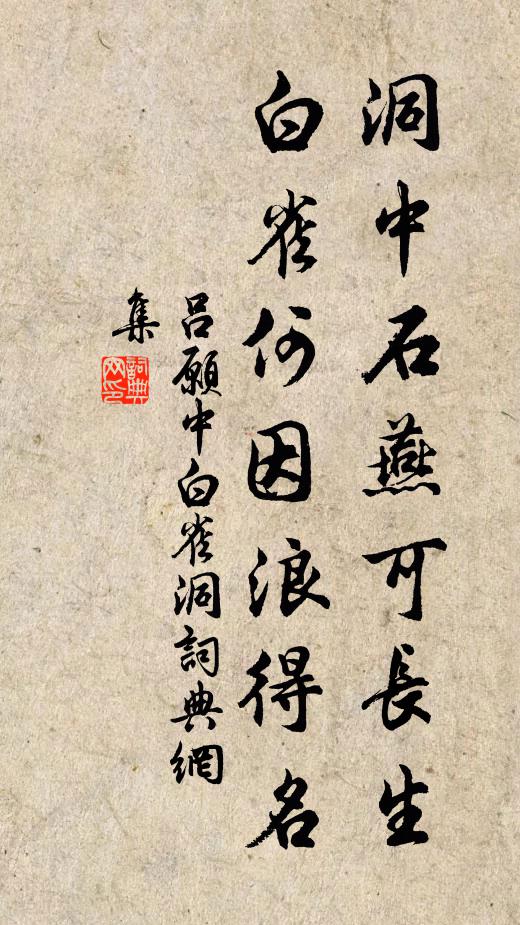 洞中石燕可長生
白雀何因浪得名
呂願中白雀洞詞典網
集
詞典網印